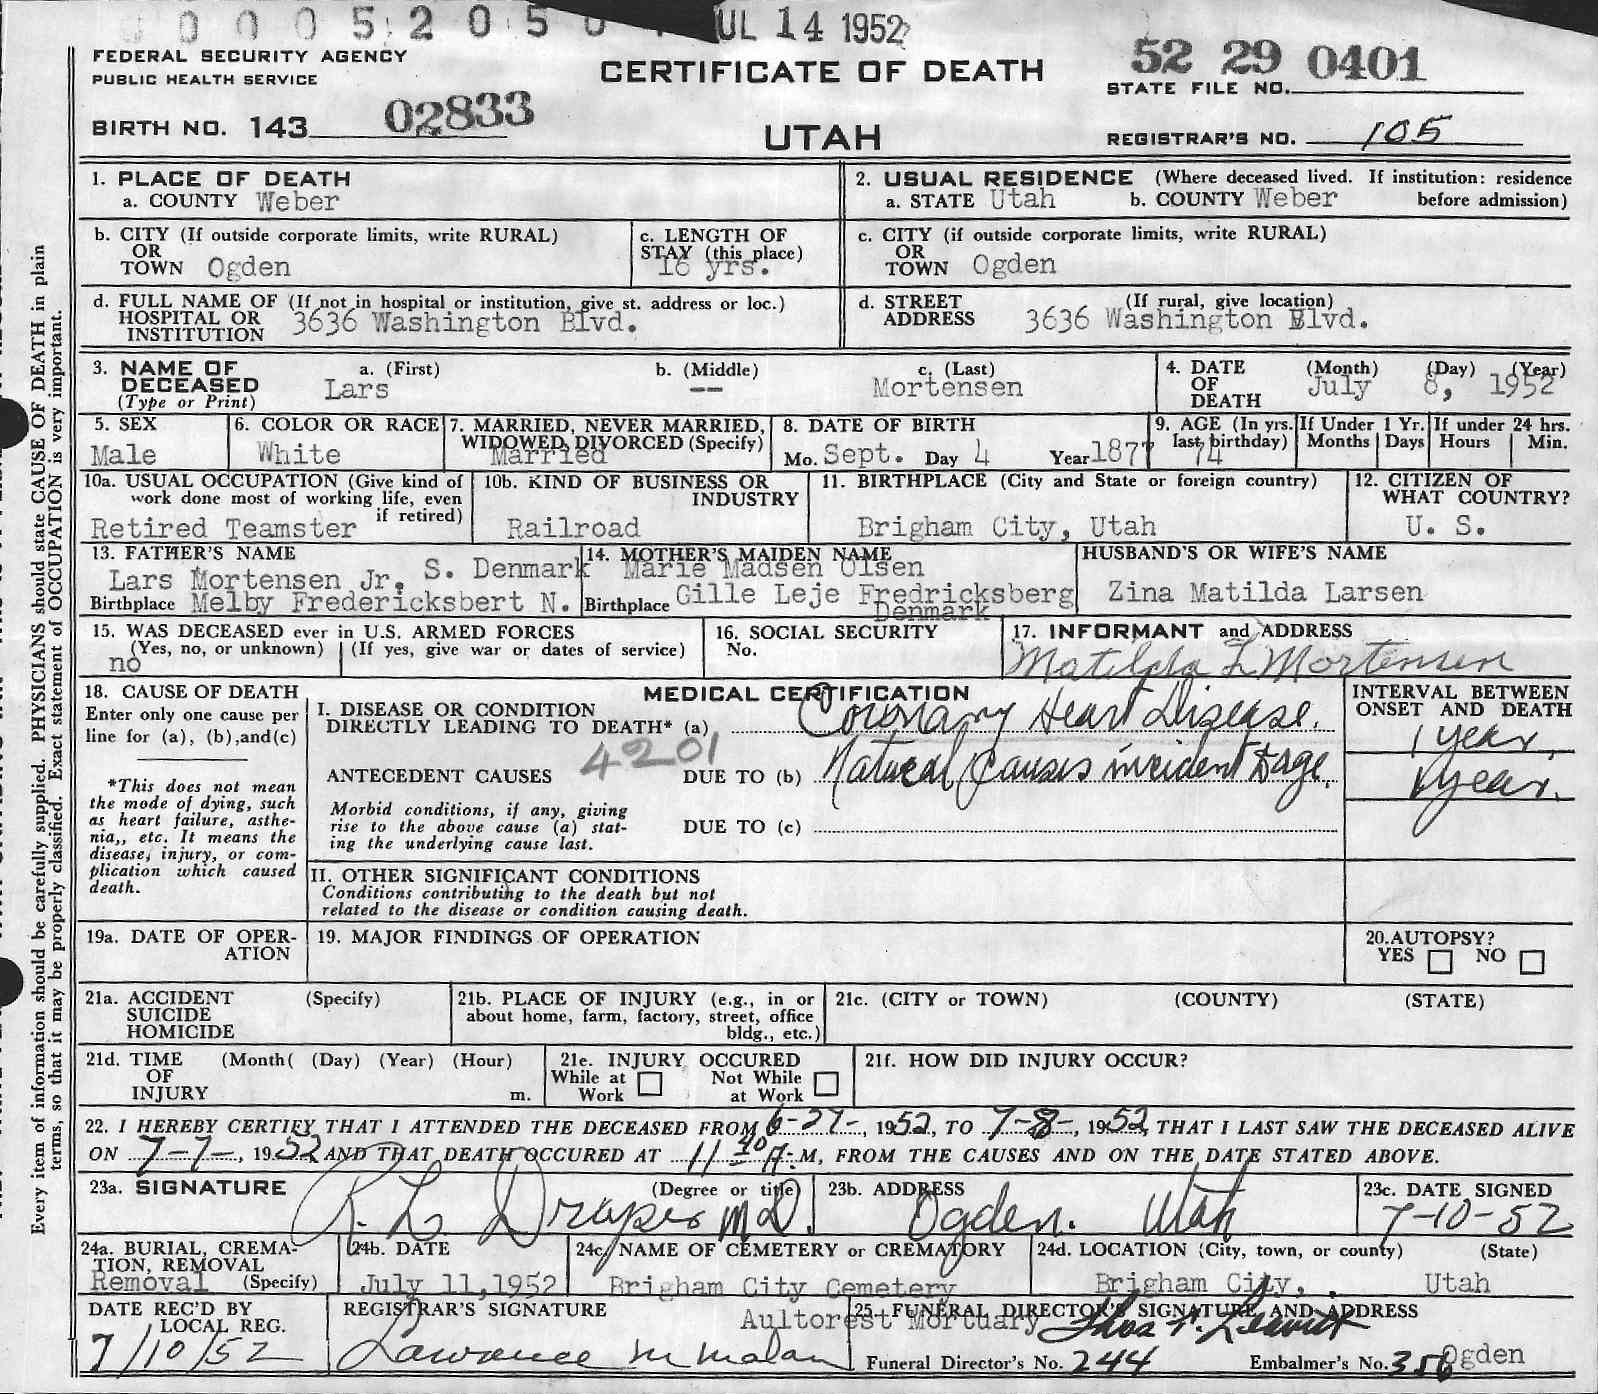 0 0 0 5 2 0 5 0
UL 14 1952
FEDERAL SECURITY AGENCY
PUBLIC HEALTH SERVICE
CERTIFICATE OF DEATH
52 29 0401
STATE FILE NO.
BIRTH NO. 143 02833
UTAH
REGISTRAR'S NO. 105
1. PLACE OF DEATH
a. COUNTY Weber
2. USUAL RESIDENCE (Where deceased lived. If institution: residence
a. STATE Utah b. COUNTY Weber before admission)
b. CITY (If outside corporate limits, write RURAL)
OR
TOWN Ogden
c. LENGTH OF
STAY (this place)
16 yrs.
c. CITY (if outside corporate limits, write RURAL)
OR
TOWN Ogden
d. FULL NAME OF (If not in hospital or institution, give st. address or loc.)
HOSPITAL OR 3636 Washington Blvd.
INSTITUTION
d. STREET (If rural, give location)
ADDRESS 3636 Washington Blvd.
3. NAME OF a. (First) b. (Middle) c. (Last)
DECEASED Lars -- Mortensen
(Type or Print)
4. DATE (Month) (Day) (Year)
OF July 8, 1952
DEATH
5. SEX
Male
6. COLOR OR RACE
White
7. MARRIED, NEVER MARRIED,
WIDOWED, DIVORCED (Specify)
Married
8. DATE OF BIRTH
Mo. Sept. Day 4 Year 1877
9. AGE (In yrs.
last birthday)
74
If Under 1 Yr.
Months Days
If under 24 hrs.
Hours Min.
10a. USUAL OCCUPATION (Give kind of
work done most of working life, even
if retired)
Retired Teamster
10b. KIND OF BUSINESS OR
INDUSTRY
Railroad
11. BIRTHPLACE (City and State or foreign country)
Brigham City, Utah
12. CITIZEN OF
WHAT COUNTRY?
U. S.
13. FATHER'S NAME
Lars Mortensen Jr. S. Denmark
Birthplace Melby Fredericksbert N.
14. MOTHER'S MAIDEN NAME
Marie Madsen Olsen
Birthplace Gille Leje Fredricksberg
Denmark
HUSBAND'S OR WIFE'S NAME
Zina Matilda Larsen
15. WAS DECEASED ever in U.S. ARMED FORCES
(Yes, no, or unknown) (If yes, give war or dates of service)
no
16. SOCIAL SECURITY
No.
17. INFORMANT and ADDRESS
Matilda L Mortensen
18. CAUSE OF DEATH
Enter only one cause per
line for (a), (b),and(c)
*This does not mean
the mode of dying, such
as heart failure, asthe-
nia,, etc. It means the
disease, injury, or com-
plication which caused
death.
MEDICAL CERTIFICATION
I. DISEASE OR CONDITION
DIRECTLY LEADING TO DEATH* (a) Coronary Heart Disease.
4201
ANTECEDENT CAUSES DUE TO (b) Natural Causes incident to age.
Morbid conditions, if any, giving
rise to the above cause (a) stat-
ing the underlying cause last.
DUE TO (c)
INTERVAL BETWEEN
ONSET AND DEATH
1 year.
1 year.
II. OTHER SIGNIFICANT CONDITIONS
Conditions contributing to the death but not
related to the disease or condition causing death.
19a. DATE OF OPER-
ATION
19. MAJOR FINDINGS OF OPERATION
20.AUTOPSY?
YES NO
21a. ACCIDENT (Specify)
SUICIDE
HOMICIDE
21b. PLACE OF INJURY (e.g., in or
about home, farm, factory, street, office
bldg., etc.)
21c. (CITY or TOWN) (COUNTY) (STATE)
21d. TIME (Month( (Day) (Year) (Hour)
OF
INJURY m.
21e. INJURY OCCURED
While at Work Not While at Work
21f. HOW DID INJURY OCCUR?
22. I HEREBY CERTIFY THAT I ATTENDED THE DECEASED FROM 6-27-, 1952, TO 7-8-, 1952, THAT I LAST SAW THE DECEASED ALIVE
ON 7-7-, 1952 AND THAT DEATH OCCURED AT 11 40 A. M, FROM THE CAUSES AND ON THE DATE STATED ABOVE.
23a. SIGNATURE (Degree or title)
R. L. Draper M.D.
23b. ADDRESS
Ogden. Utah
23c. DATE SIGNED
7-10-52
24a. BURIAL, CREMA-
TION, REMOVAL
Removal (Specify)
24b. DATE
July 11,1952
24c. NAME OF CEMETERY or CREMATORY
Brigham City Cemetery
24d. LOCATION (City, town, or county) (State)
Brigham City, Utah
DATE REC'D BY
LOCAL REG.
7/10/52
REGISTRAR'S SIGNATURE
Lawrence M Malan
25. FUNERAL DIRECTOR'S SIGNATURE AND ADDRESS
Aultorest Mortuary
Funeral Director's No. 244 Embalmer's No. 356 Ogden
Every item of information should be carefully supplied. PHYSICIANS should state CAUSE OF DEATH in plain
terms, so that it may be properly classified. Exact statement of OCCUPATION is very important.